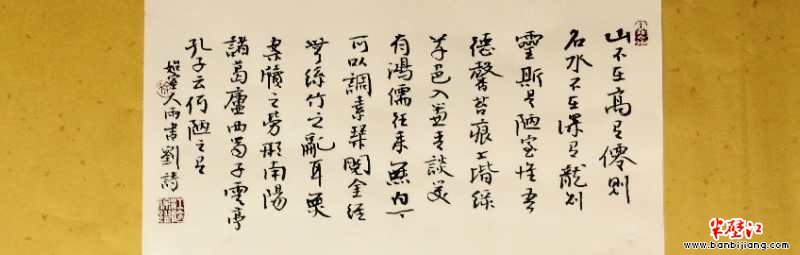 山不在高有僊則
名水不在深有龍則
靈斯是陋室惟吾
德馨苔痕上階綠
草色入簾青談笑
有鴻儒往来無白丁
可以調素琴閱金經
無絲竹之亂耳無
案牘之勞形南陽
諸葛廬西蜀子雲亭
孔子云何陋之有
人雨書劉詩
半壁江
www.banbijiang.com